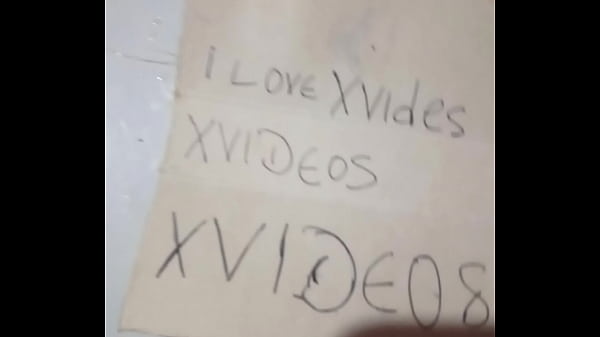 I LOVE XVIdes
XVIDEOS
XVIDEOS